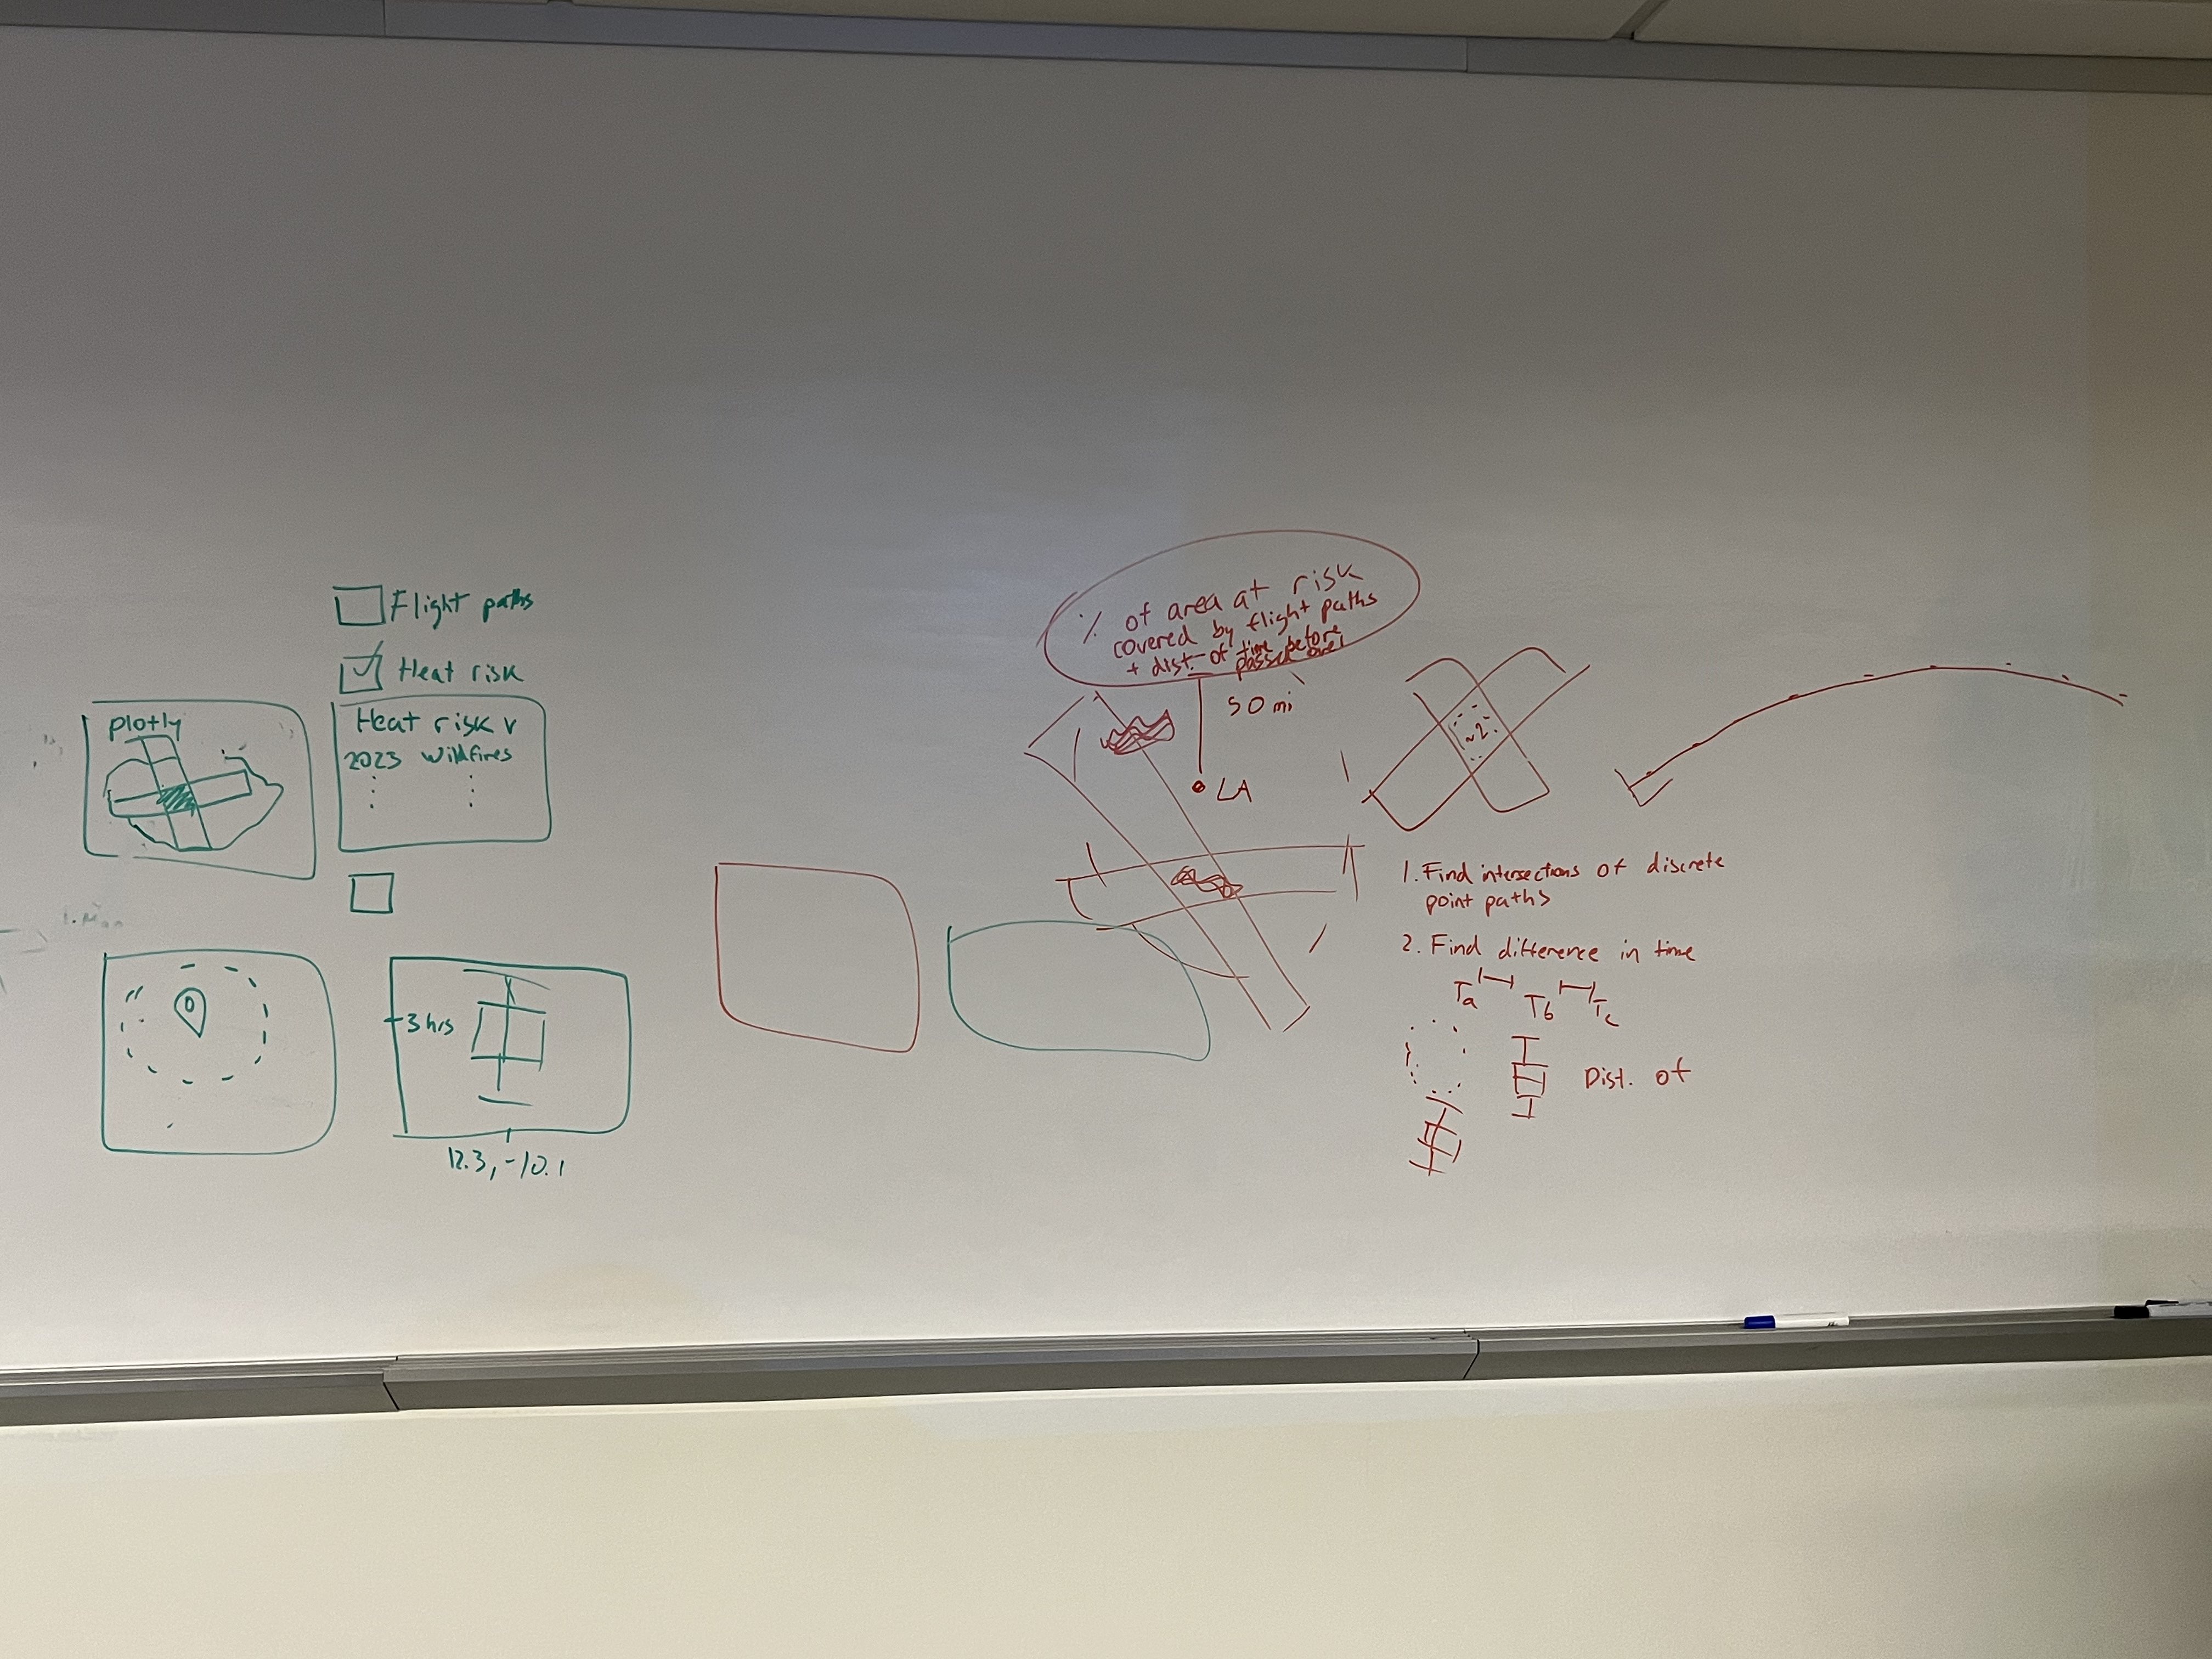 Flight paths
Heat risk
plotly
Heat risk v
2023 wildfires
3 hrs
12.3, -10.1
% of area at risk
covered by flight paths
+ dist. of time before
passed over
50 mi
LA
~2.
1. Find intersections of discrete
point paths
2. Find difference in time
Ta Tb Tc
Dist. of